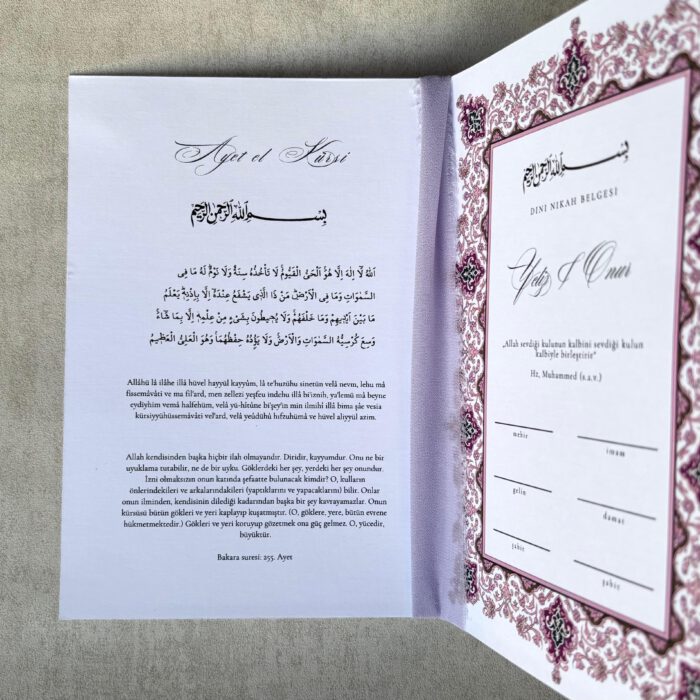 Ayet el Kürsi
بِسْمِ اللّٰهِ الرَّحْمٰنِ الرَّحِيْمِ
اَللّٰهُ لَٓا اِلٰهَ اِلَّا هُوَۚ اَلْحَيُّ الْقَيُّومُۚ لَا تَأْخُذُهُ سِنَةٌ وَلَا نَوْمٌۜ لَهُ مَا فِى
السَّمٰوَاتِ وَمَا فِى الْاَرْضِۜ مَنْ ذَا الَّذٖى يَشْفَعُ عِنْدَهُٓ اِلَّا بِاِذْنِهٖۜ يَعْلَمُ
مَا بَيْنَ اَيْدٖيهِمْ وَمَا خَلْفَهُمْۚ وَلَا يُحٖيطُونَ بِشَىْءٍ مِنْ عِلْمِهٖٓ اِلَّا بِمَا شَٓاءَۚ
وَسِعَ كُرْسِيُّهُ السَّمٰوَاتِ وَالْاَرْضَۚ وَلَا يَؤُ۫دُهُ حِفْظُهُمَاۚ وَهُوَ الْعَلِىُّ الْعَظٖيمُ
Allâhü lâ ilâhe illâ hüvel hayyül kayyûm, lâ te'huzühu sinetün velâ nevm, lehu mâ
fissemâvâti ve ma fil'ard, men zellezi yeşfeu indehu illâ bi'iznih, ya'lemü mâ beyne
eydiyhim vemâ halfehüm, velâ yü-hîtûne bi'şey'in min ilmihî illâ bima şâe vesia
kürsiyyühüssemâvâti vel'ard, velâ yeûdühû hıfzuhümâ ve hüvel aliyyül azim.
Allah kendisinden başka hiçbir ilah olmayandır. Diridir, kayyumdur. Onu ne bir
uyuklama tutabilir, ne de bir uyku. Göklerdeki her şey, yerdeki her şey onundur.
İzni olmaksızın onun katında şefaatte bulunacak kimdir? O, kulların
önlerindekileri ve arkalarındakileri (yaptıklarını ve yapacaklarını) bilir. Onlar
onun ilminden, kendisinin dilediği kadarından başka bir şey kavrayamazlar. Onun
kürsüsü bütün gökleri ve yeri kaplayıp kuşatmıştır. (O, göklere, yere, bütün evrene
hükmetmektedir.) Gökleri ve yeri koruyup gözetmek ona güç gelmez. O, yücedir,
büyüktür.
Bakara suresi: 255. Ayet
بِسْمِ اللّٰهِ الرَّحْمٰنِ الرَّحِيْمِ
DINI NIKAH BELGESI
Yeliz & Onur
„Allah sevdiği kulunun kalbini sevdiği kulun
kalbiyle birleştirir“
Hz, Muhammed (s.a.v.)
mehir
imam
gelin
damat
şahit
şahit